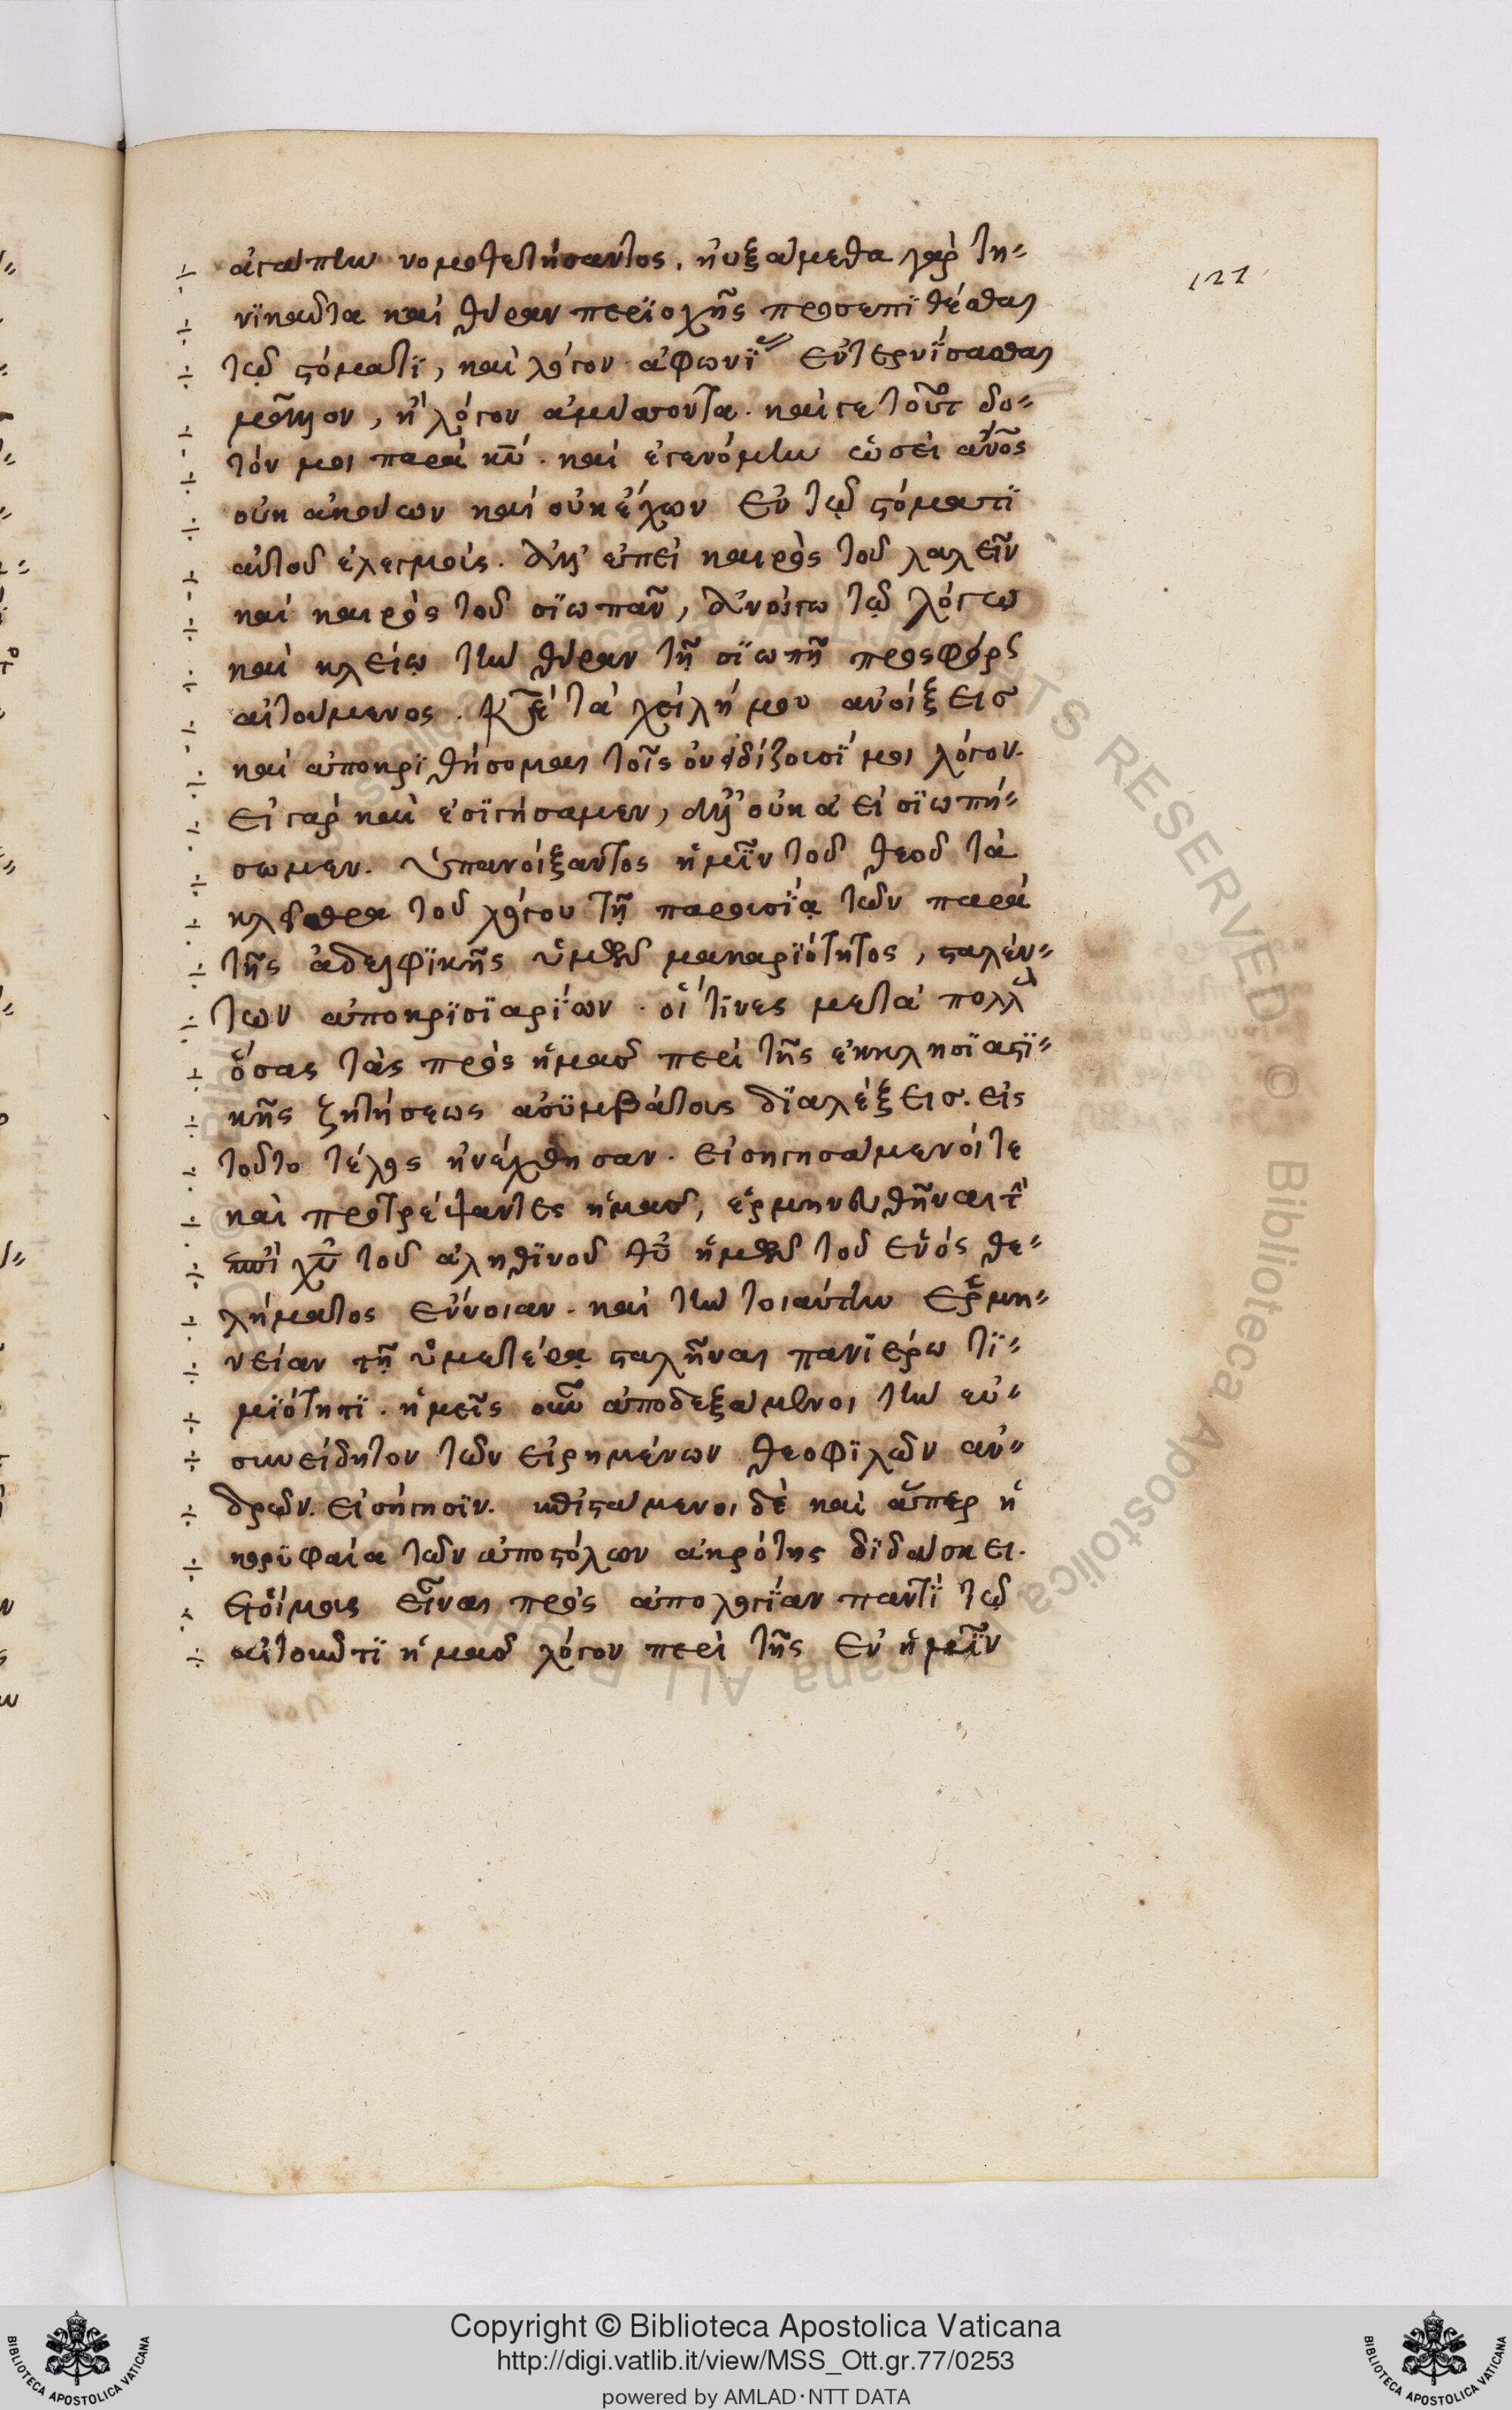 ἀγάπην νομοθετήσαντος. ηὐξάμεθα γὰρ τη-
νϊκαῦτα καὶ θύραν περϊοχῆς προσεπϊθέσθαι
τῷ στόματϊ, καὶ λόγον ἀφωνϊ´ ἐνστερνΐσασθαι
μᾶλλον, ἢ λόγον ἀμύσσοντα. καί γε τοῦτ δο-
τόν μοι παρὰ κ̅υ̅. καὶ ἐγενόμην ὡσεὶ ἀν̅ο̅ς
οὐκ ἀκούων καὶ οὐκ ἔχων ἐν τῷ στόματϊ
αὐτοῦ ἐλεγμούς. ἀλλ' ἐπεὶ καιρὸς τοῦ λαλεῖν
καὶ καιρὸς τοῦ σϊωπᾶν, ἀνοίγω τῷ λόγῳ
καὶ κλείω τὴν θύραν τῇ σϊωπῇ προσφόρς
αἰτούμενος. κ̅ε̅ τὰ χείλη μου ἀνοίξεισ
καὶ ἀποκρϊθήσομαι τοῖς ὀνειδίζουσΐ μοι λόγον.
εἰ γὰρ καὶ ἐσϊγήσαμεν, ἀλλ' οὐκ ἀεὶ σϊωπή-
σωμεν. ὑπανοίξαντος ἡμῖν τοῦ θεοῦ τὰ
κλεῖθρα τοῦ λόγου τῇ παρουσΐᾳ τῶν παρὰ
τῆς ἀδελφϊκῆς ὑμῶν μακαρϊότητος, σταλέν-
των ἀποκρϊσϊαρΐων. οἵ τϊνες μετὰ πολλ
ὅσας τὰς πρὸς ἡμᾶσ περὶ τῆς ἐκκλησϊαστϊ-
κῆς ζητήσεως ἀσϋμβάτους δϊαλέξεισ. εἰς
τοῦτο τέλος ἠνέχθησαν. εἰσηγησάμενοί τε
καὶ προτρέψαντες ἡμᾶσ, ἑρμηνευθῆναι τ
ἐπὶ χ̅υ̅ τοῦ ἀληθϊνοῦ θ̅υ̅ ἡμῶν τοῦ ἑνὸς θε-
λήματος εὔνοιαν. καὶ τὴν τοιαύτην ἑρμη-
νείαν τῇ ὑμετέρᾳ σταλῆναι πανϊέρω τϊ-
μϊότητϊ. ἡμεῖς οὖν ἀποδεξάμενοι τὴν εὐ-
συνείδητον τῶν εἰρημένων θεοφϊλῶν ἀν-
δρῶν. εἰσήγησϊν. κθϊστάμενοι δὲ καὶ ἅπερ ἡ
κορϋφαία τῶν ἀποστόλων ἀκρότης δϊδάσκει.
ἑτοίμους εἶναι πρὸς ἀπολογΐαν παντΐ τῷ
αἰτοῦντϊ ἡμᾶσ λόγον περὶ τῆς ἐν ἡμῖν
121
Copyright © Biblioteca Apostolica Vaticana
http://digi.vatlib.it/view/MSS_Ott.gr.77/0253
powered by AMLAD·NTT DATA
BIBLIOTECA APOSTOLICA VATICANA
BIBLIOTECA APOSTOLICA VATICANA